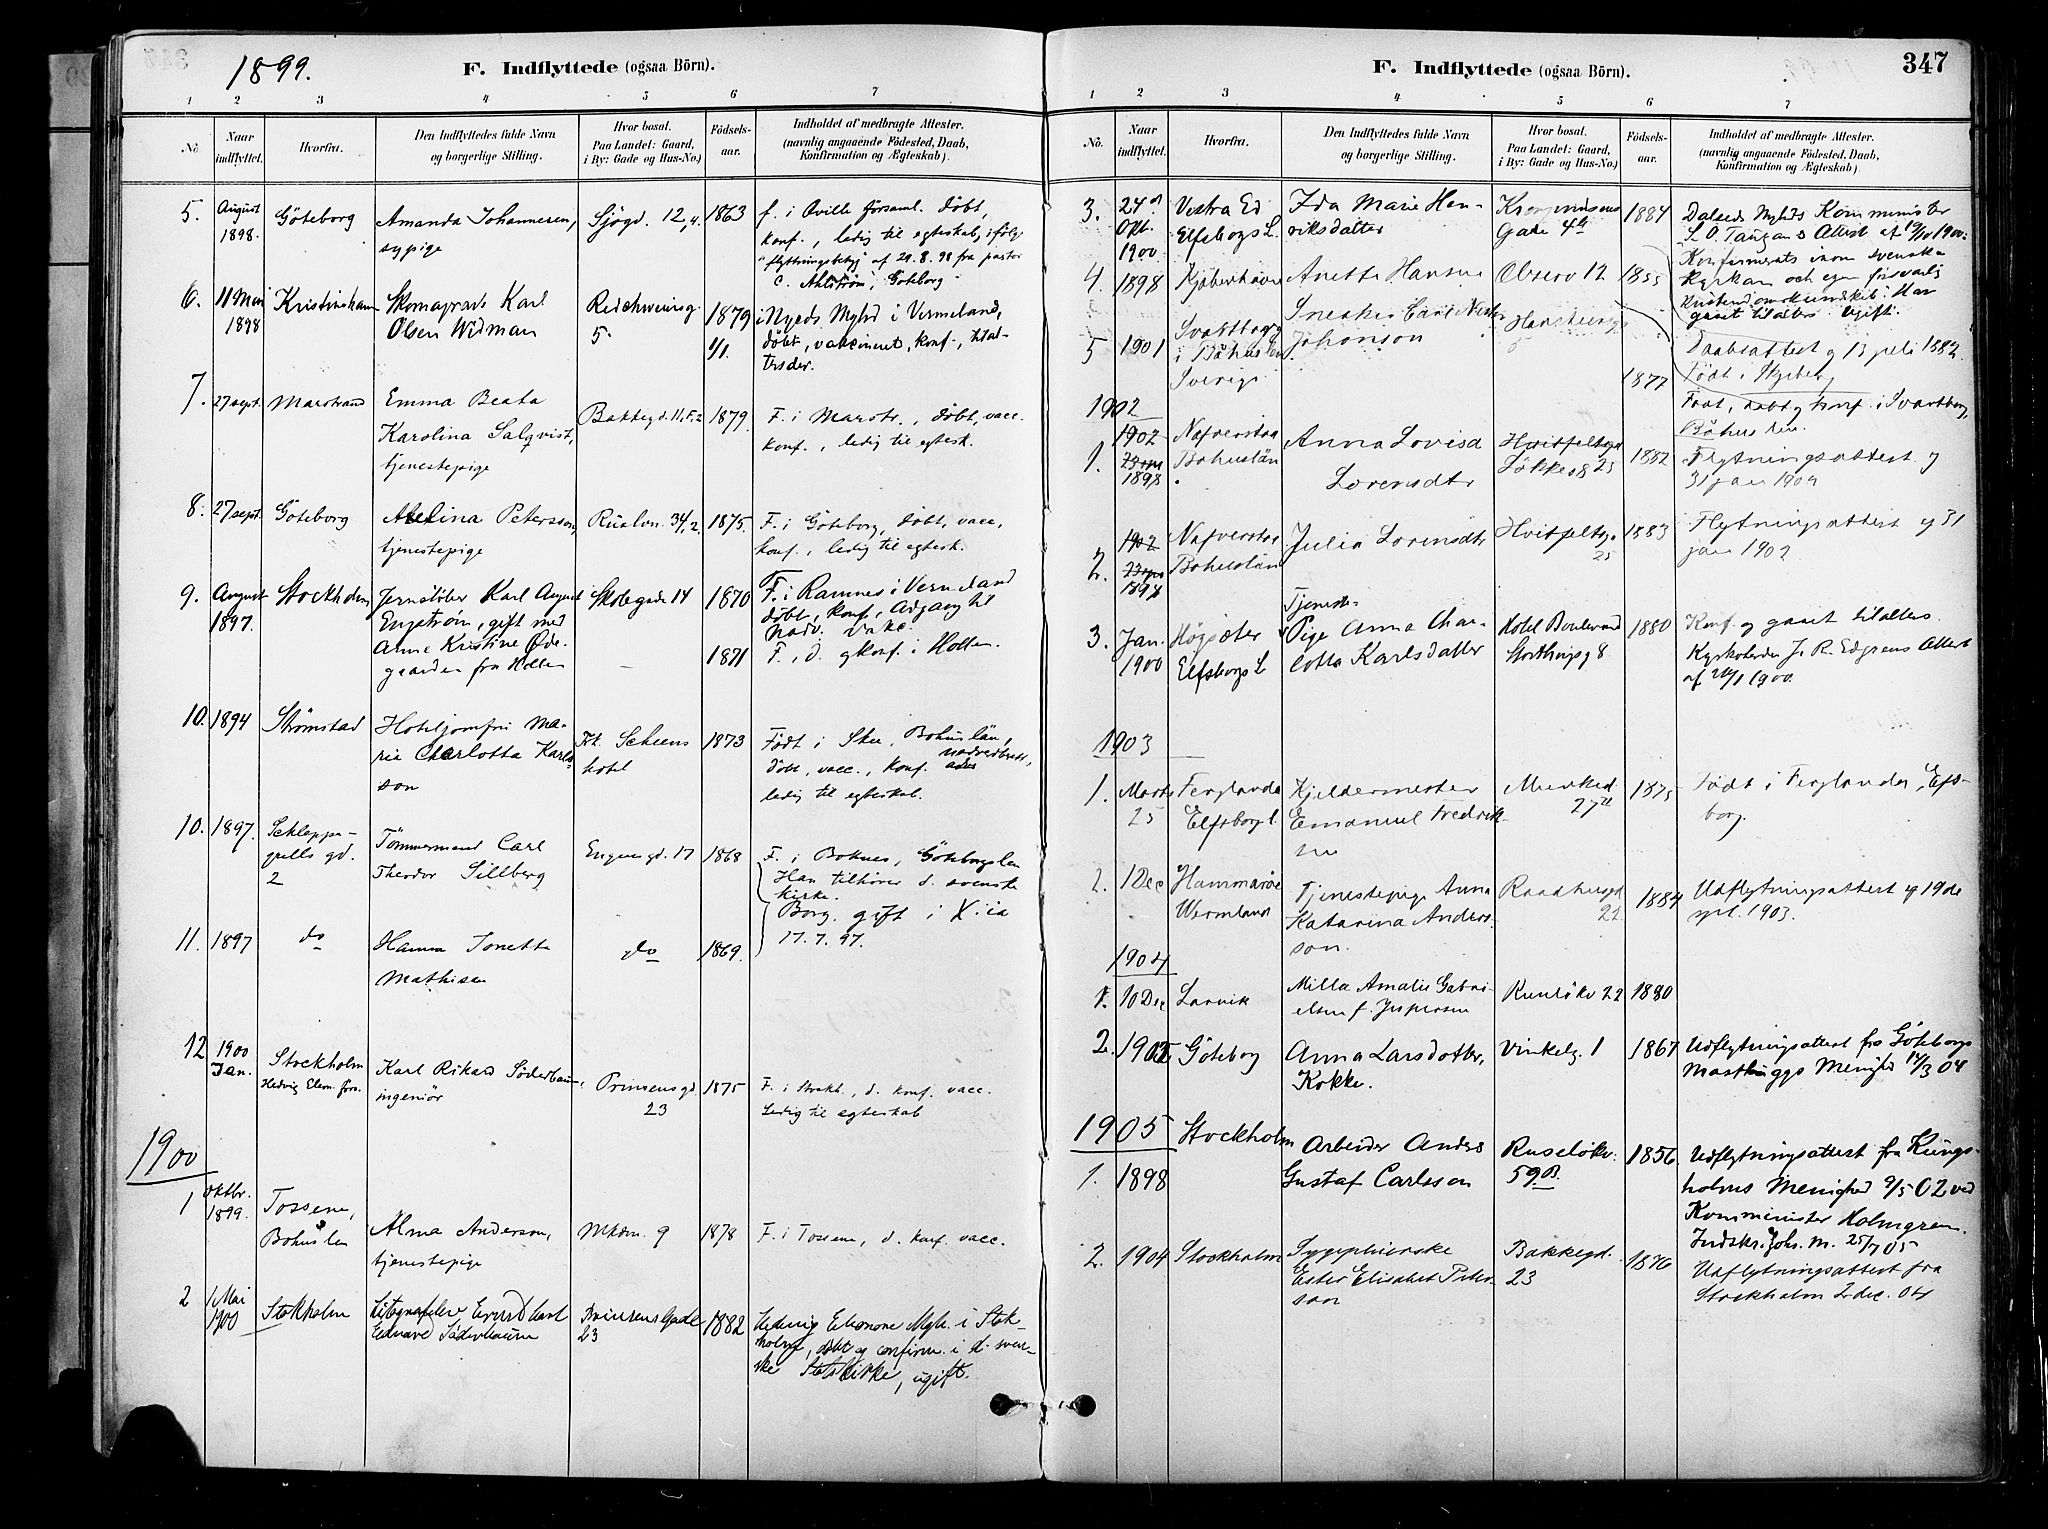 1899.
F. Indflyttede (ogsaa Börn).
1 2 3 4 5 6 7
No.
Naar indflyttet.
Hvorfra.
Den Indflyttedes fulde Navn og borgerlige Stilling.
Hvor bosat. Paa Landet: Gaard, i By: Gade og Hus-No.)
Födsels-aar.
Indholdet af medbragte Attester. (navnlig angaaende Födested, Daab, Konfirmation og Ægteskab).
5. August 1898. Göteborg Amanda Johannesen, sypige Sjögd. 12,4. 1863 f. i Qville församl. döbt,
konf., ledig til egteskab, ifölge
"flyttningsbetyg" af 29.8.98 fra pastor
C. Ahlström, Göteborg
6. 11 Mai 1898 Kristinehamn Skomagersv. Karl
Olsen Widman 5. 1879 1/1. i Nyeds Mghd i Vermeland,
döbt, vaccineret, konf.,
7. 27 sept. Marstrand Emma Beata
Karolina Salqvist,
tjenestepige Bakkegd. 11, F. 2 1879. F. i Marstr., döbt, vacc.
konf., ledig til egtesk.
8. 27 sept. Göteborg Petersson,
tjenestepige 34,2 1875. F. i Göteborg, döbt, vacc,
konf., ledig til egtesk.
9. August 1897. Stockholm Jernstöber Karl August
Engström, gift med
Anne Kristine Öde-
gaarden fra Holten Skolegade 14 1870 F. i Ramnes i Vermeland
döbt, konf., Adgang til
Nadv. vakc.
— 1871 F., d. og konf. i Holten.
10. 1894 Strömstad Hoteljomfru Ma-
rie Charlotta Karls-
son Frk. Scheens
hotel 1873 Född i Skee, Bohuslän,
döbt, vacc., konf.
ledig til egteskab.
10. 1897. gd.
2 Tömmermand Carl
Theodor Sillberg Engensgd. 17 1868 F. i Boknes, Göteborgslen
Han tilhörer d. svenske
kirke.
Borg. gift i X:ia
17.7.97.
11. 1897 do Hanna Jonette
Mathisen do 1869.
12 1900 Jan. Stockholm
Hedvig Eleon. förs. Karl Rikard Söderbaum,
ingeniör Prinsens gd.
23 1875 F. i Stockh., d. konf. vacc.
Ledig til egteskab
1900
1 Oktbr. 1899. Tossene,
Bohuslen Alma Anderson,
tjenestepige Mkdm. 9 1878 F. i Tossene, d. konf. vacc.
2 1 Mai 1900 Stokholm
Edvard Söderbaum Prinsens Gade
23 1882 Hedvig Eleonore Mgh. i Stok-
holm, döbt og confirm. i d. sven-
ske Statskirke, ugift.
F. Indflyttede (ogsaa Börn).
347
1 2 3 4 5 6 7
No.
Naar indflyttet.
Hvorfra.
Den Indflyttedes fulde Navn og borgerlige Stilling.
Hvor bosat. Paa Landet: Gaard, i By: Gade og Hus-No.)
Födsels-aar.
Indholdet af medbragte Attester. (navnlig angaaende Födested, Daab, Konfirmation og Ægteskab).
3. 24 Okt. 1900. Vestra Ed
Elfsborgs L. Ida Marie Hen-
riksdatter
Gade 4 1884 Dalseds Mghds Komminister
Attest af 19/10 1900.
Konfirmerats inom svenska
kyrkan och eger försvarlig
kristendomskundskab. Har
gaaet tilalters. Ugift.
4. 1898 Kjöbenhavn Anette Hansen Observ 12 1855
Daabsattest
5 1901 Svarteborg
i Bohuslen
Sverige
Johanson 1877 Född, döbt og konf. i Svarteborg,
Bohuslen.
1902
1. 1902 1898 Nafverstad
Bohuslän Anna Lovisa
Lorensdtr Hvitfeltsgd
Lökkeg 25 1882 Flytningsattest af
31 jan 1902
2. 1902 1898 Nafverstad
Bohuslän Julia Lorensdtr Hvitfeltsg.
25 1883 Flytningsattest af 31
jan 1902
3. Jan. 1900 Högsäter
Elfsborgs L Tjeneste-
Pige Anna Char-
lotta Karlsdatter Hotel Boulevard
Storthingsg 8 1880 Konf. og gaaet tilalters.
Kyrkoherde J. R. Edgrens Attest
af 1900.
1903
1. Marts 25 Ferglanda
Elfsborg l. Kjeldermester
Emanuel Fredrik-
sen Munked
27 1875 Född i Ferglanda, Elfs-
borg.
2. 1 Dec Hammaröe
Wermland Tjenestepige Anna
Katarina Anders-
son. Raadhusgd
22 1884 Udflytningsattest af 19de
spt. 1903.
1904
1. 10 Dec Larvik Milla Amalie Gabri-
elsen f. Jespersen 22 1880
2. Göteborg Anna Larsdotter,
Kokke. Vinkelg. 1 1867 Udflytningsattest fra Göteborgs
Masthuggs Menighed 14/3 04
1905
1. 1898 Stockholm Arbeider Anders
Gustaf Carlsson Ruselökv.
59 B. 1856 Udflytningsattest fra Kungs-
holms Menighed 9/5 02 ved
Komminister Holmgren.
Indskr. Johs. M. 25/7 05
2. 1904 Stockholm Sygepleierske
Ester Elisabet Peter-
son Bakkegd.
23 1876 Udflytningsattest fra
Stockholm 2 dec. 04